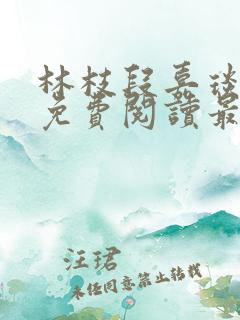 林枝段嘉淡
免費閱讀最
汪珺
未经同意禁止转载